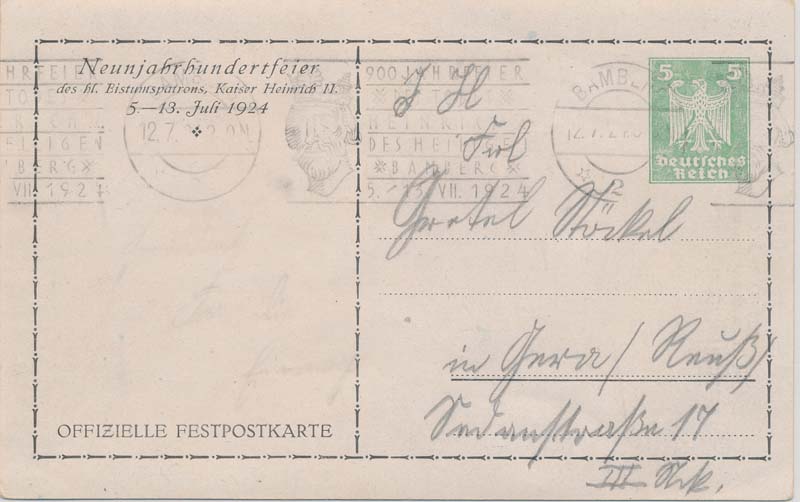 Neunjahrhundertfeier
des hl. Bistumspatrons, Kaiser Heinrich II.
5.—13. Juli 1924
OFFIZIELLE FESTPOSTKARTE
HRFEIER
ILIGEN
BERG*
VII. 1924
12.7.
900 JAHRFEIER
HEINRICH
DES HEILIGEN
*BAMBERG*
5.-13. VII. 1924
BAMBE
12.7.24
5 5
Deutsches
Reich
Frl
Gretel Stöckel
in Gera / Reuß /
Sedanstraße 17
III Stck.